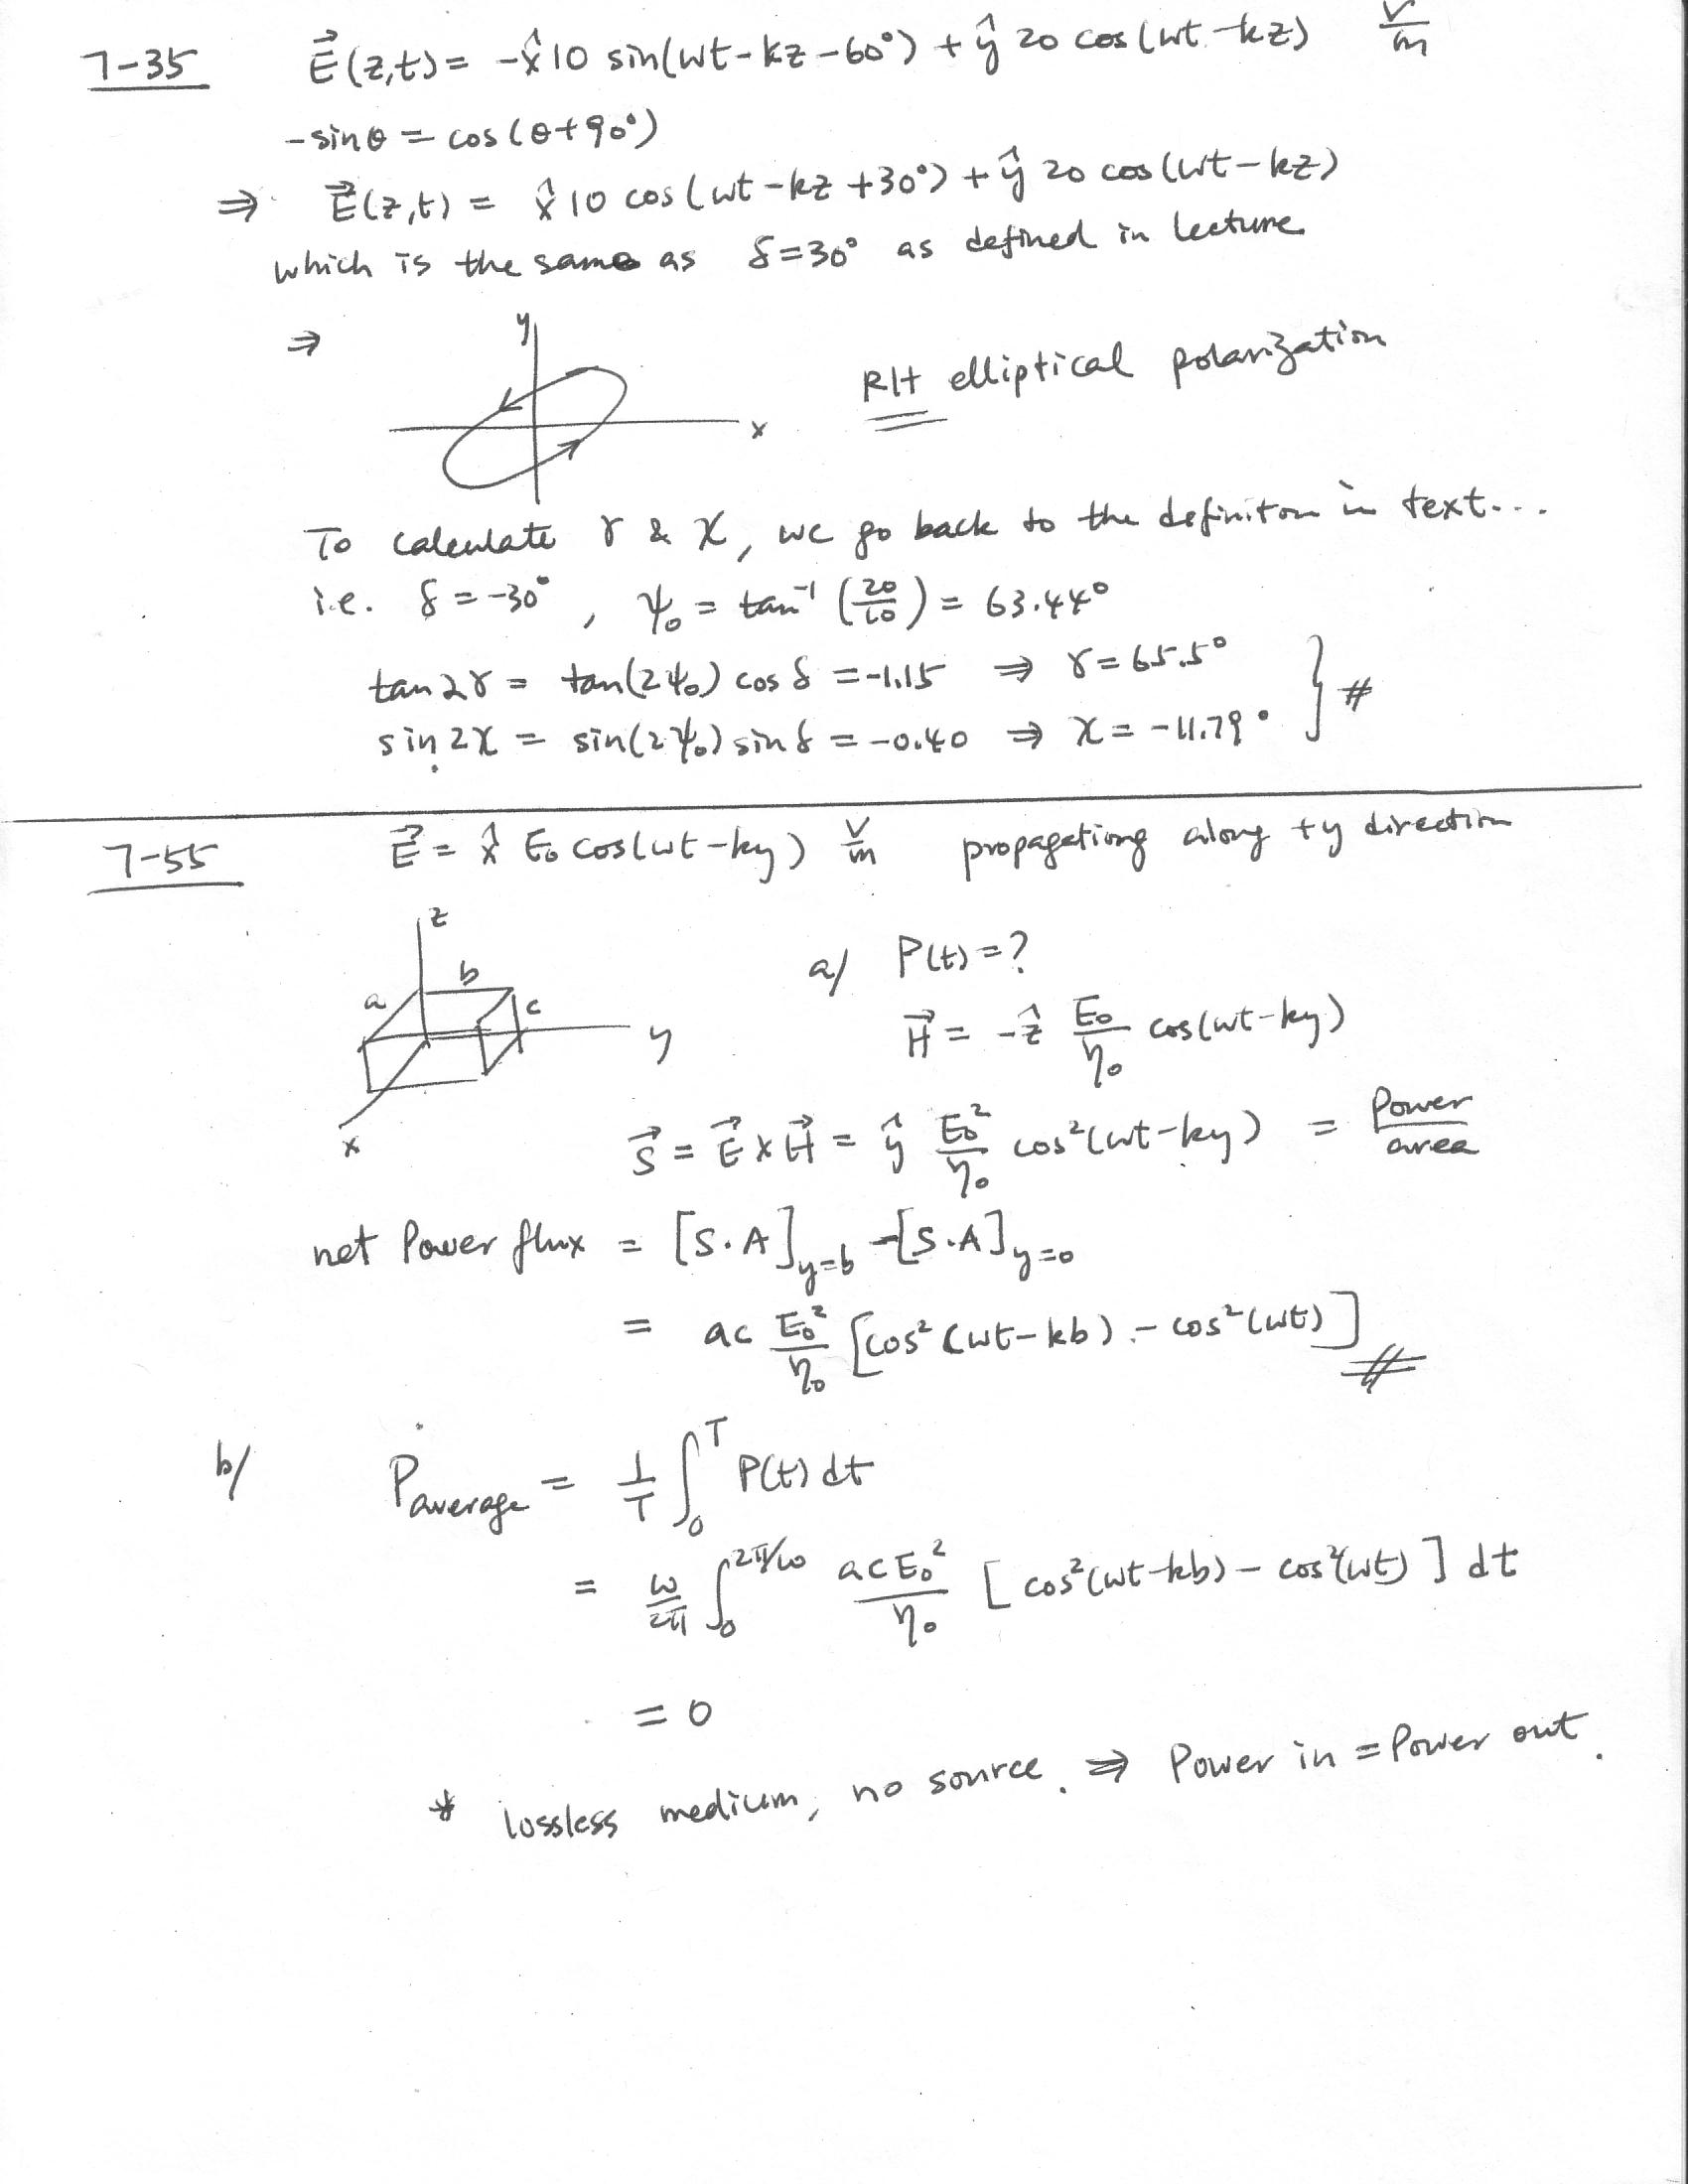 7-35 E⃗(z,t) = -x̂ 10 sin(ωt - kz - 60°) + ŷ 20 cos(ωt - kz) V/m
-sinθ = cos(θ+90°)
⇒ E⃗(z,t) = x̂ 10 cos(ωt - kz + 30°) + ŷ 20 cos(ωt - kz)
which is the same as δ=30° as defined in lecture
⇒ y
x
RH elliptical polarization
To calculate γ & χ, we go back to the definiton in text...
i.e. δ = -30°, ψ₀ = tan⁻¹(20/10) = 63.44°
tan2γ = tan(2ψ₀) cos δ = -1.15 ⇒ γ = 65.5°
sin 2χ = sin(2ψ₀) sin δ = -0.40 ⇒ χ = -11.79° } #
7-55 E⃗ = x̂ E₀ cos(ωt - ky) V/m propagationg along +y direction
z
a b c
y
x
a/ P(t) = ?
H⃗ = -ẑ E₀/η₀ cos(ωt - ky)
S⃗ = E⃗ × H⃗ = ŷ E₀²/η₀ cos²(ωt - ky) = Power/area
net Power flux = [S·A]y=b - [S·A]y=0
= ac E₀²/η₀ [cos²(ωt - kb) - cos²(ωt)] #
b/ Paverage = 1/T ∫₀ᵀ P(t) dt
= ω/2π ∫₀^2π/ω acE₀²/η₀ [cos²(ωt - kb) - cos²(ωt)] dt
= 0
* lossless medium, no source. ⇒ Power in = Power out.